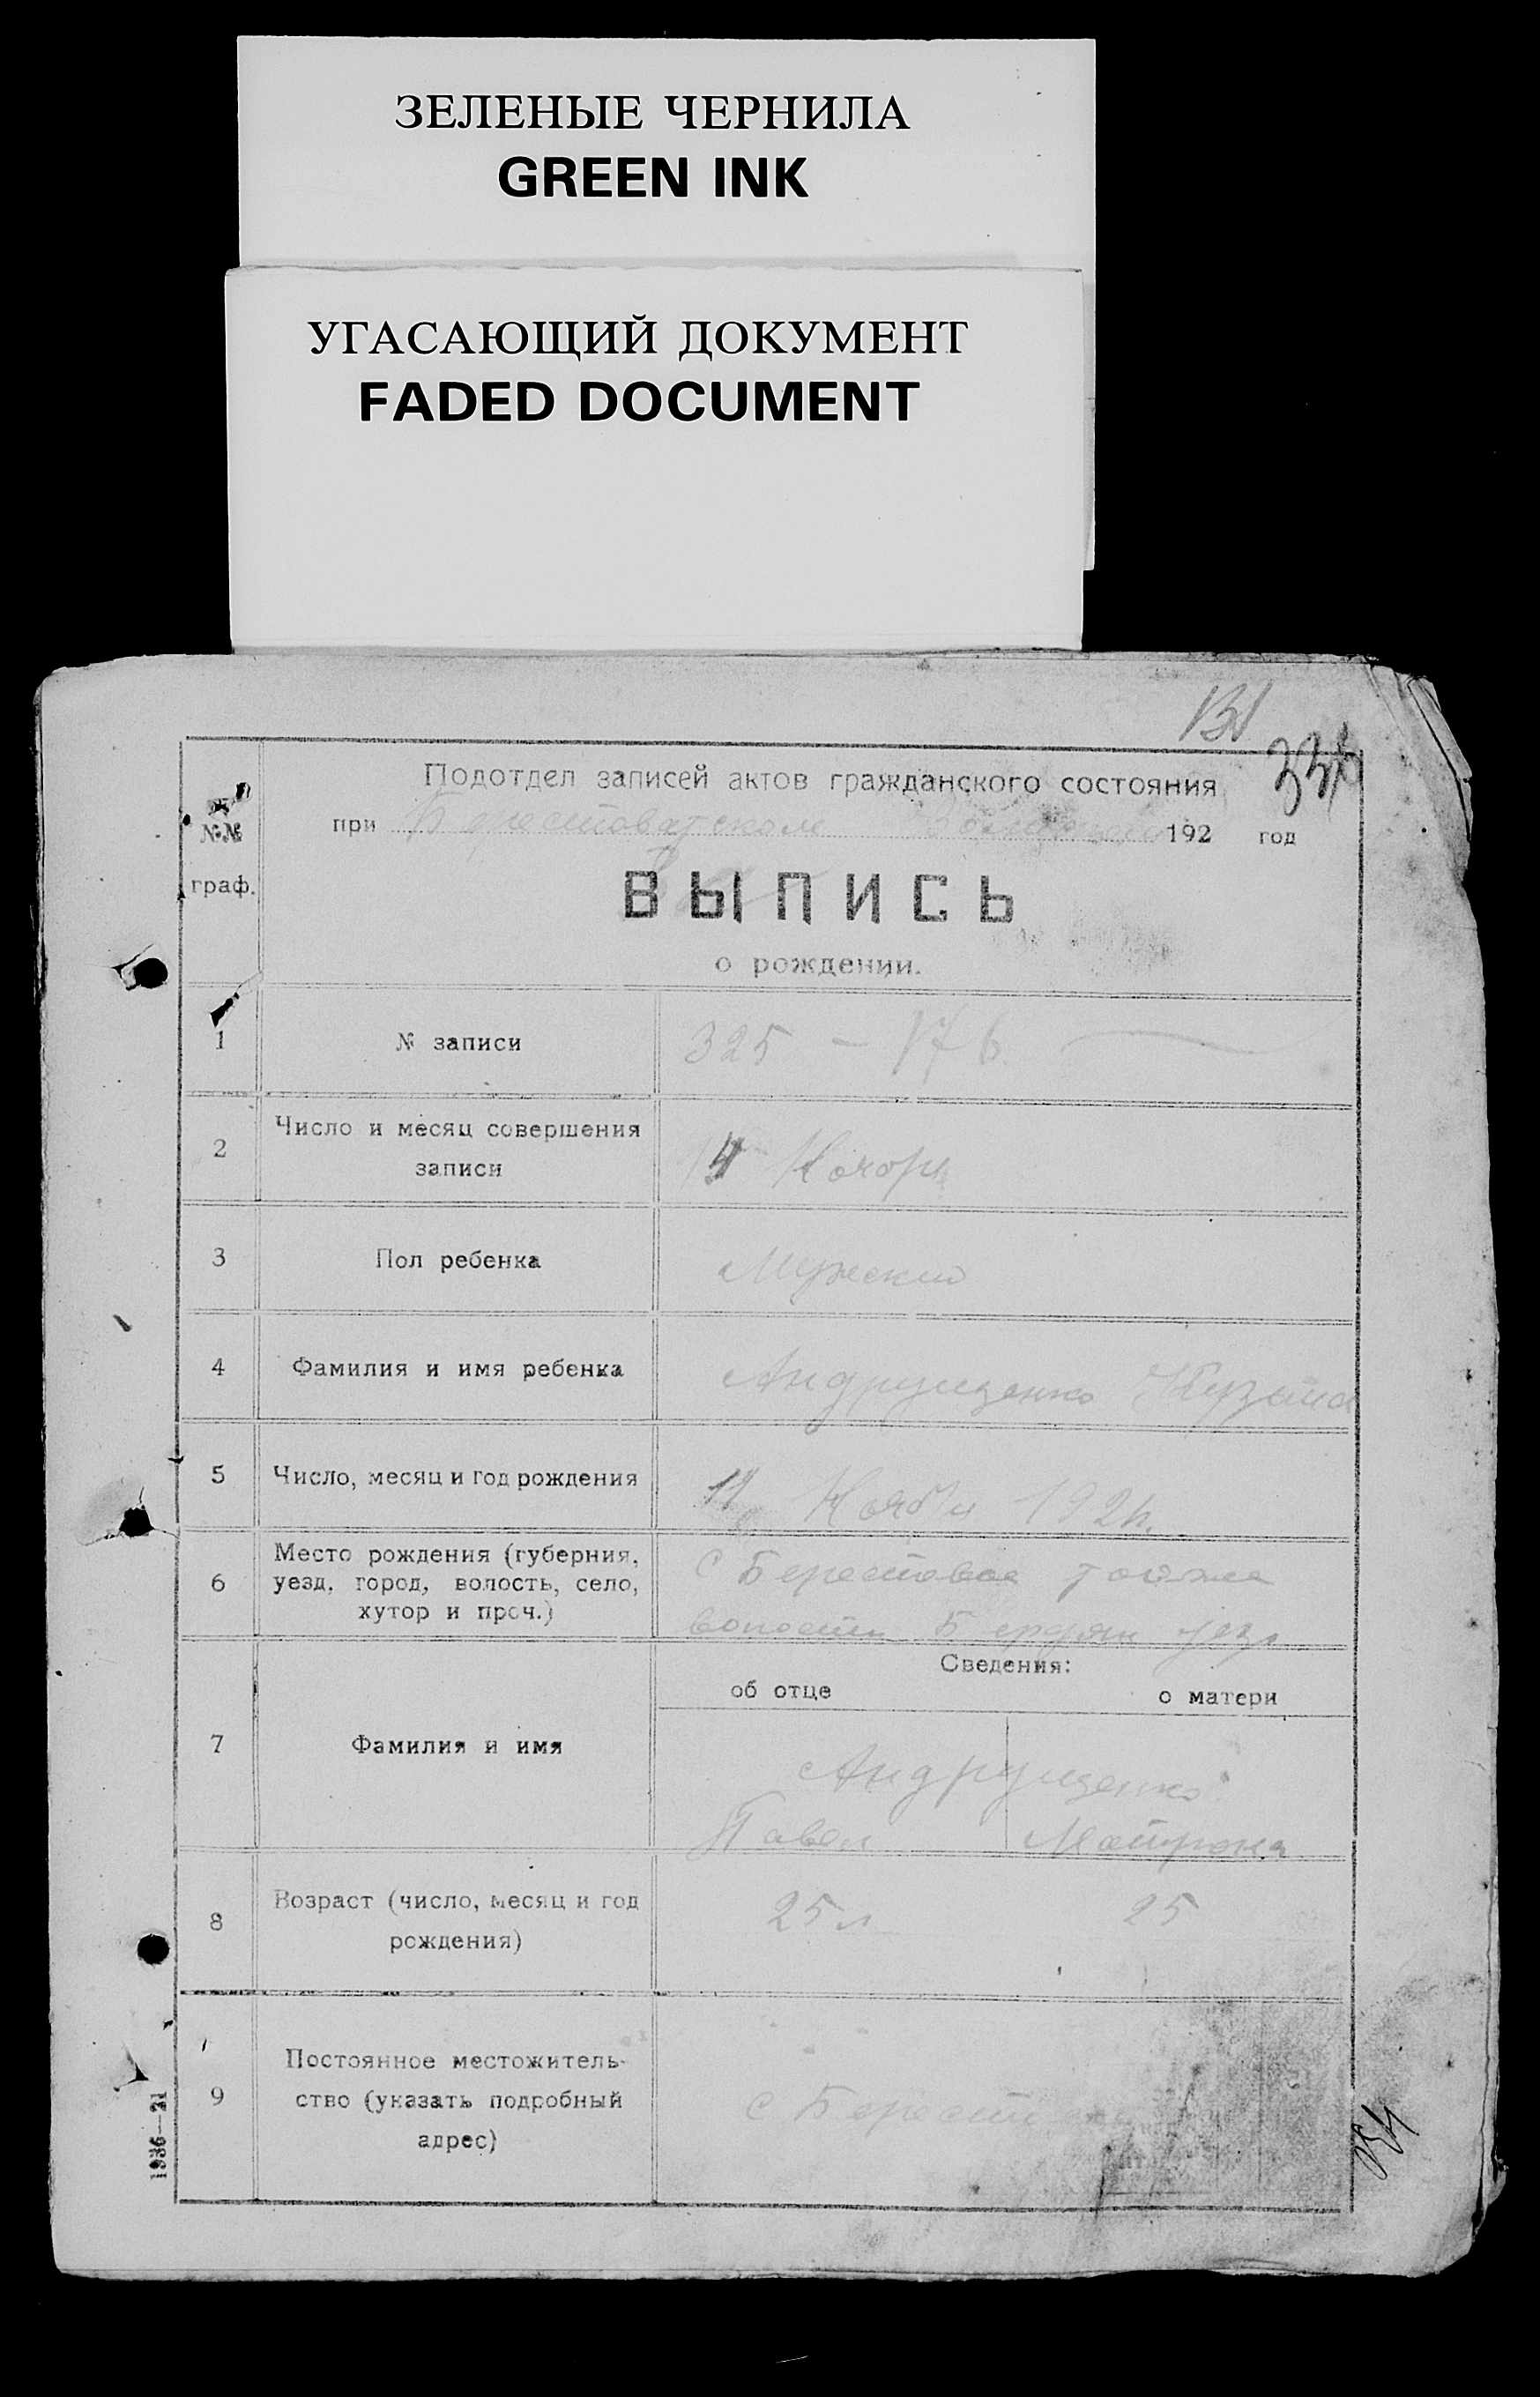 ЗЕЛЕНЫЕ ЧЕРНИЛА
GREEN INK
УГАСАЮЩИЙ ДОКУМЕНТ
FADED DOCUMENT
131
Подотдел записей актов гражданского состояния
№№
при 192 год
граф.
ВЫПИСЬ
о рождении.
1 № записи 325 – 176
2 Число и месяц совершения
записи
3 Пол ребенка Мужский
4 Фамилия и имя ребенка Андрущенко Кузьма
5 Число, месяц и год рождения 11 192
6 Место рождения (губерния, с Берестовое тояже
уезд, город, волость, село,
хутор и проч.) волости Бердян уезд
Сведения:
об отце о матери
7 Фамилия и имя Андрущенко
Павел Матрона
8 Возраст (число, месяц и год 25 л 25
рождения)
9 Постоянное местожитель-
ство (указать подробный с
адрес)
1936—21